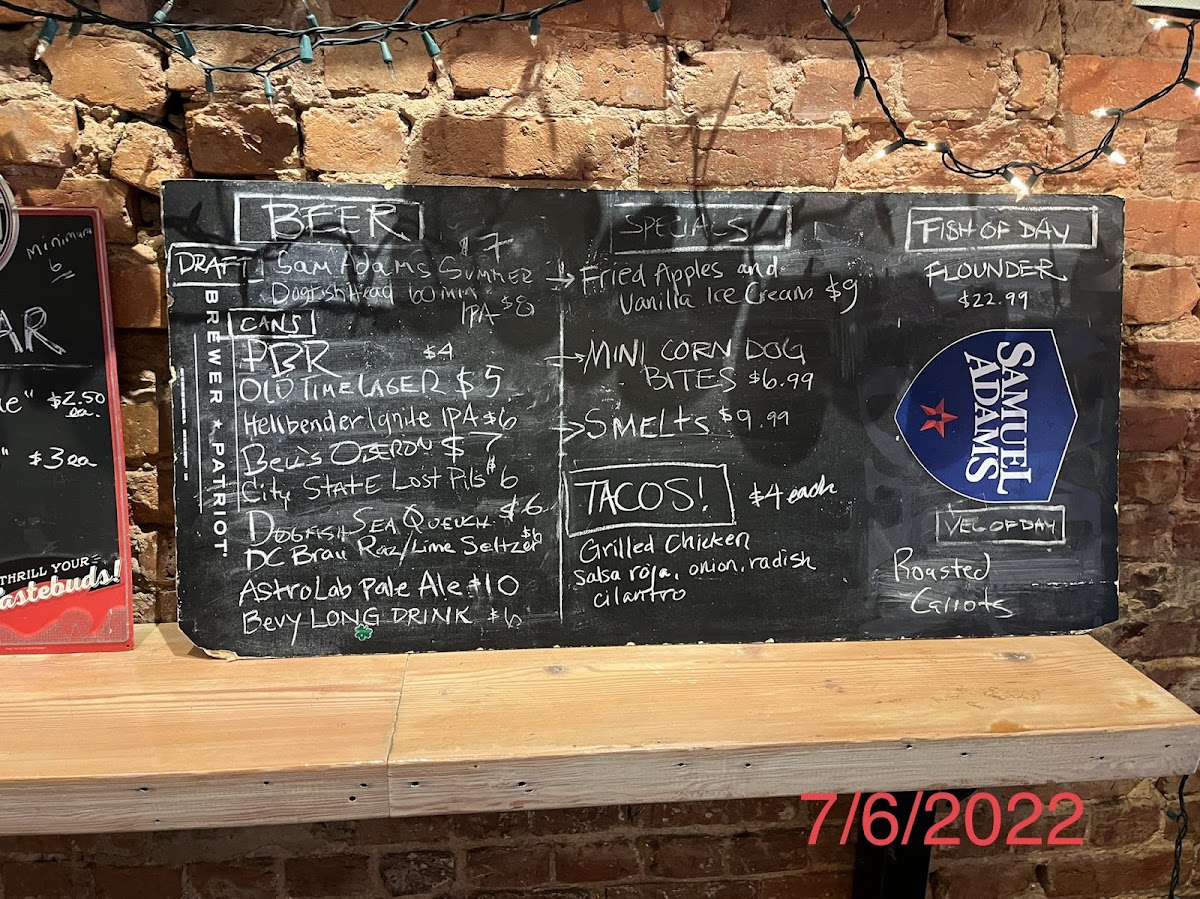 Minimum
6
AR
e" $2.50
ea.
" $3 ea
THRILL YOUR
Tastebuds!
BEER
DRAFT
Sam Adams Summer $7
Dogfish Head 60 min
IPA $8
CANS
PBR $4
OLD TIME LAGER $5
Hellbender Ignite IPA $6
Bell's OBERON $7
City STATE Lost Pils $6
DOGFISH SEA QUENCH $6
DC Brau Raz/Lime Seltzer $6
AstroLab Pale Ale $10
Bevy LONG DRINK $6
BREWER ★ PATRIOT
SPECIALS
→ Fried Apples and
Vanilla Ice Cream $9
→ MINI CORN DOG
BITES $6.99
→ SMELTS $9.99
TACOS! $4 each
Grilled Chicken
Salsa roja, onion, radish
cilantro
FISH OF DAY
FLOUNDER
$22.99
SAMUEL
ADAMS
VEG OF DAY
Roasted
Carrots
7/6/2022